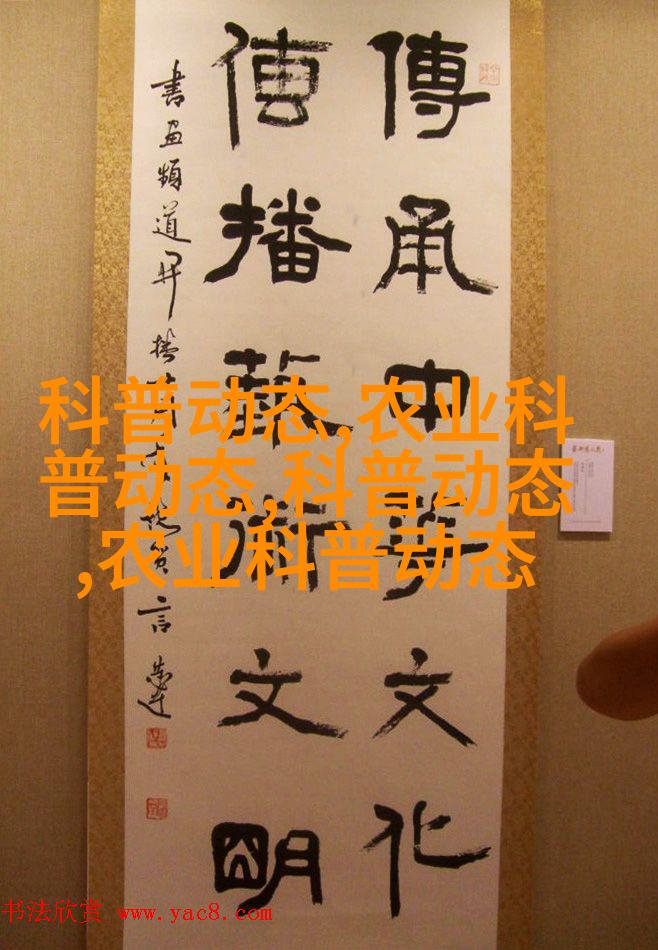 傳承中華文化
傳播藝術文明
書畫頻道開播
言
科普动态,农业科
普动态,科普动态
,农业科普动态
书法欣赏 www.yac8.com